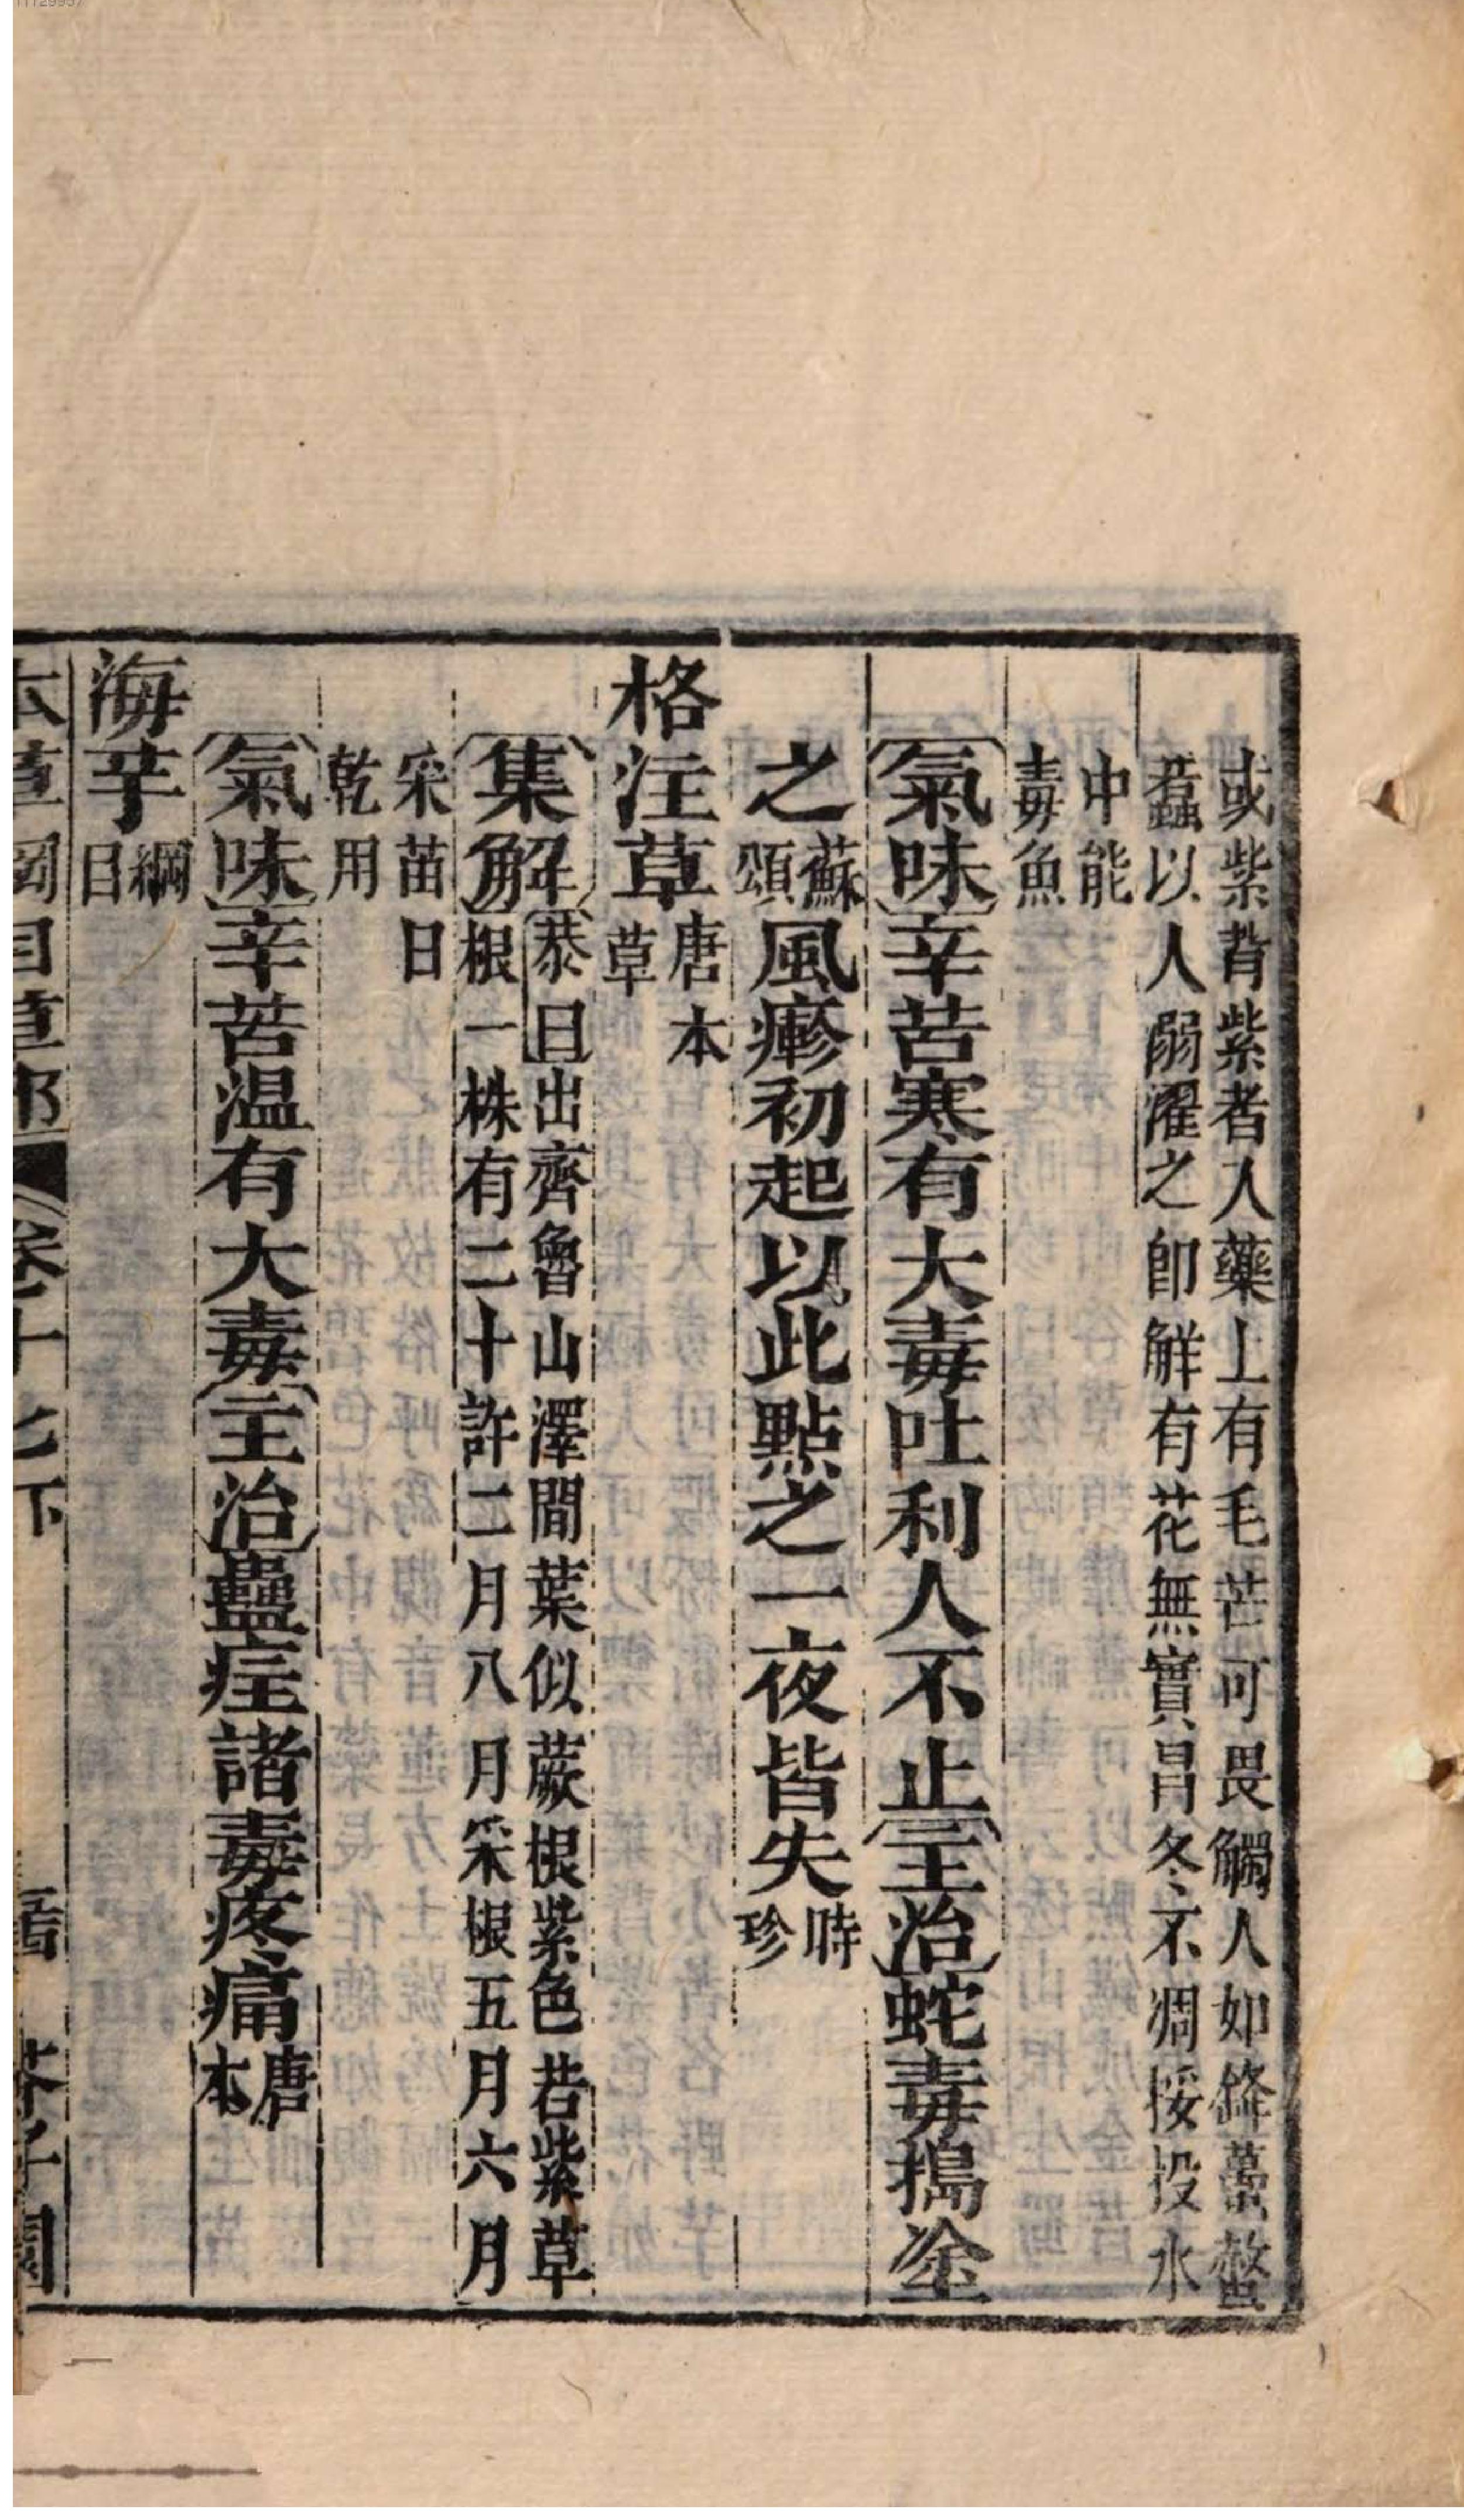 或紫背紫者入藥上有毛芒可畏觸人如蜂蠆螫
蠚以人溺濯之卽解有花無實冒冬不凋挼投水
中能
毒魚
氣味辛苦寒有大毒吐利人不止主治蛇毒搗塗
之蘇頌風瘮初起以此點之一夜皆失時珍
格注草唐本草
集解恭曰出齊魯山澤間葉似蕨根紫色若紫草
根一株有二十許二月八月采根五月六月
采苗日
乾用
氣味辛苦温有大毒主治蠱疰諸毒疼痛唐本
海芋綱目
本草綱目草部 卷十七下 芥子園